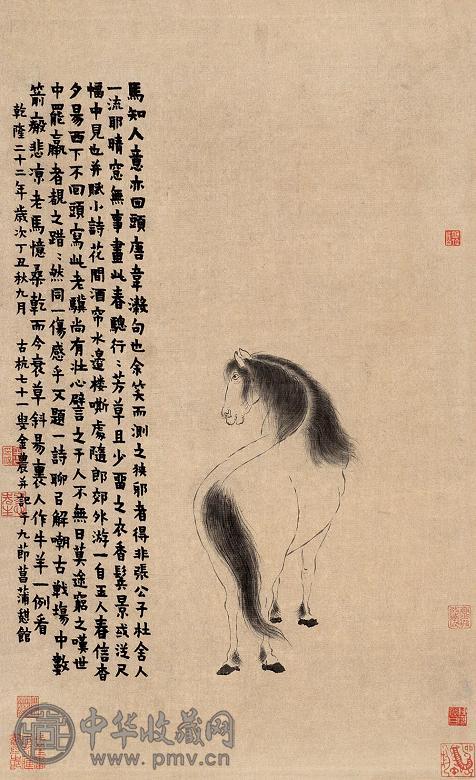 馬知人意亦回頭唐韋澥句也余笑而測之狹邪者得非張公子杜舍人
一流耶晴窓無事畫此春驄行〻芳草且少留之衣香鬓景或從尺
幅中見也并賦小詩花間酒帘水邊楼嘶處隨郎郊外游一自玉人春信杳
夕昜西下不回頭寫此老驥尚有壯心譬之于人不無日莫途窮之嘆世
中罷羸者覩之踖〻然同一傷感乎又題一詩聊㠯解嘲古戰塲中數
箭瘢悲凉老馬憶桑乾而今衰草斜昜裏人作牛羊一例看
乾隆二十二年歲次丁丑秋九月 古杭七十一叟金農并記于九節菖蒲憩館
中华收藏网
www.pmv.cn